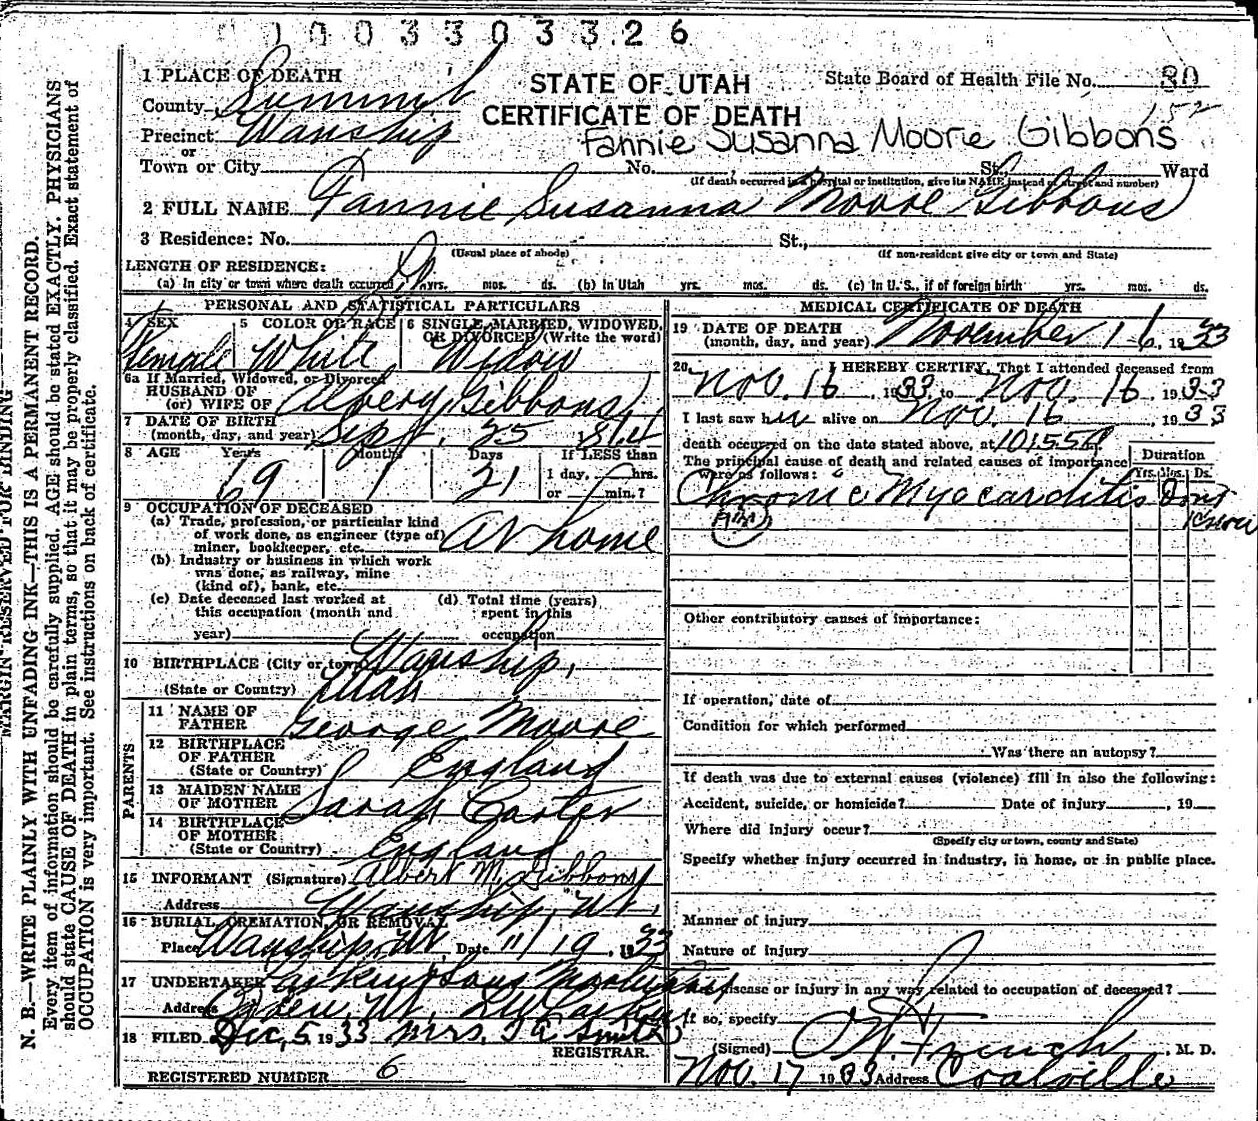 0 0 0 3 3 0 3 3 2 6
1 PLACE OF DEATH
STATE OF UTAH
CERTIFICATE OF DEATH
State Board of Health File No. 80
152
County Summit
Precinct Wanship
or
Fannie Susanna Moore Gibbons
Town or City No. St. Ward
(If death occurred in a hospital or institution, give its NAME instead of street and number)
2 FULL NAME Fannie Susanna Moore Gibbons
3 Residence: No. St.,
(Usual place of abode) (If non-resident give city or town and State)
LENGTH OF RESIDENCE:
(a) In city or town where death occurred yrs. mos. ds. (b) In Utah yrs. mos. ds. (c) In U.S., if of foreign birth yrs. mos. ds.
PERSONAL AND STATISTICAL PARTICULARS
4 SEX 5 COLOR OR RACE 6 SINGLE, MARRIED, WIDOWED, OR DIVORCED (Write the word)
Female White Widow
6a If Married, Widowed, or Divorced
HUSBAND OF
(or) WIFE OF Albert Gibbons
7 DATE OF BIRTH
(month, day, and year) Sept. 25
8 AGE Years Months Days If LESS than
69 1 21 1 day, hrs.
or min.?
9 OCCUPATION OF DECEASED
(a) Trade, profession, or particular kind
of work done, as engineer (type of)
miner, bookkeeper, etc. At home
(b) Industry or business in which work
was done, as railway, mine
(kind of), bank, etc.
(c) Date deceased last worked at (d) Total time (years)
this occupation (month and spent in this
year) occupation
10 BIRTHPLACE (City or town) Wanship,
(State or Country) Utah
PARENTS
11 NAME OF
FATHER George Moore
12 BIRTHPLACE
OF FATHER
(State or Country) England
13 MAIDEN NAME
OF MOTHER Sarah Carter
14 BIRTHPLACE
OF MOTHER
(State or Country) England
15 INFORMANT (Signature) Albert M. Gibbons
Address Wanship, Ut.
16 BURIAL, CREMATION, OR REMOVAL
Place Wanship, Ut. Date 11/19, 1933
17 UNDERTAKER Sons Mortuary
Address Ogden, Ut.
18 FILED Dec, 5, 1933 Mrs. Smith
REGISTRAR.
REGISTERED NUMBER 6
MEDICAL CERTIFICATE OF DEATH
19 DATE OF DEATH
(month, day, and year) November 16, 1933
20 I HEREBY CERTIFY, That I attended deceased from
Nov. 16, 1933, to Nov. 16, 1933
I last saw her alive on Nov. 16, 1933
death occurred on the date stated above, at
The principal cause of death and related causes of importance
were as follows:
Duration
Yrs. Mos. Ds.
Chronic Myocarditis Dont
know
Other contributory causes of importance:
If operation, date of
Condition for which performed
Was there an autopsy?
If death was due to external causes (violence) fill in also the following:
Accident, suicide, or homicide? Date of injury , 19
Where did injury occur?
(Specify city or town, county and State)
Specify whether injury occurred in industry, in home, or in public place.
Manner of injury
Nature of injury
disease or injury in any way related to occupation of deceased?
If so, specify
(Signed) French, M. D.
Nov. 17 1933 Address Coalville
MARGIN RESERVED FOR BINDING
N. B.—WRITE PLAINLY WITH UNFADING INK—THIS IS A PERMANENT RECORD.
Every item of information should be carefully supplied. AGE should be stated EXACTLY. PHYSICIANS
should state CAUSE OF DEATH in plain terms, so that it may be properly classified. Exact statement of
OCCUPATION is very important. See instructions on back of certificate.